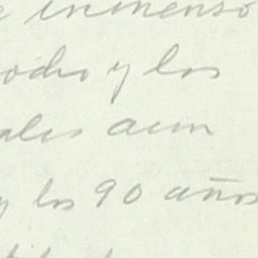 e inmenso
y los
ales aun
y los 90 años